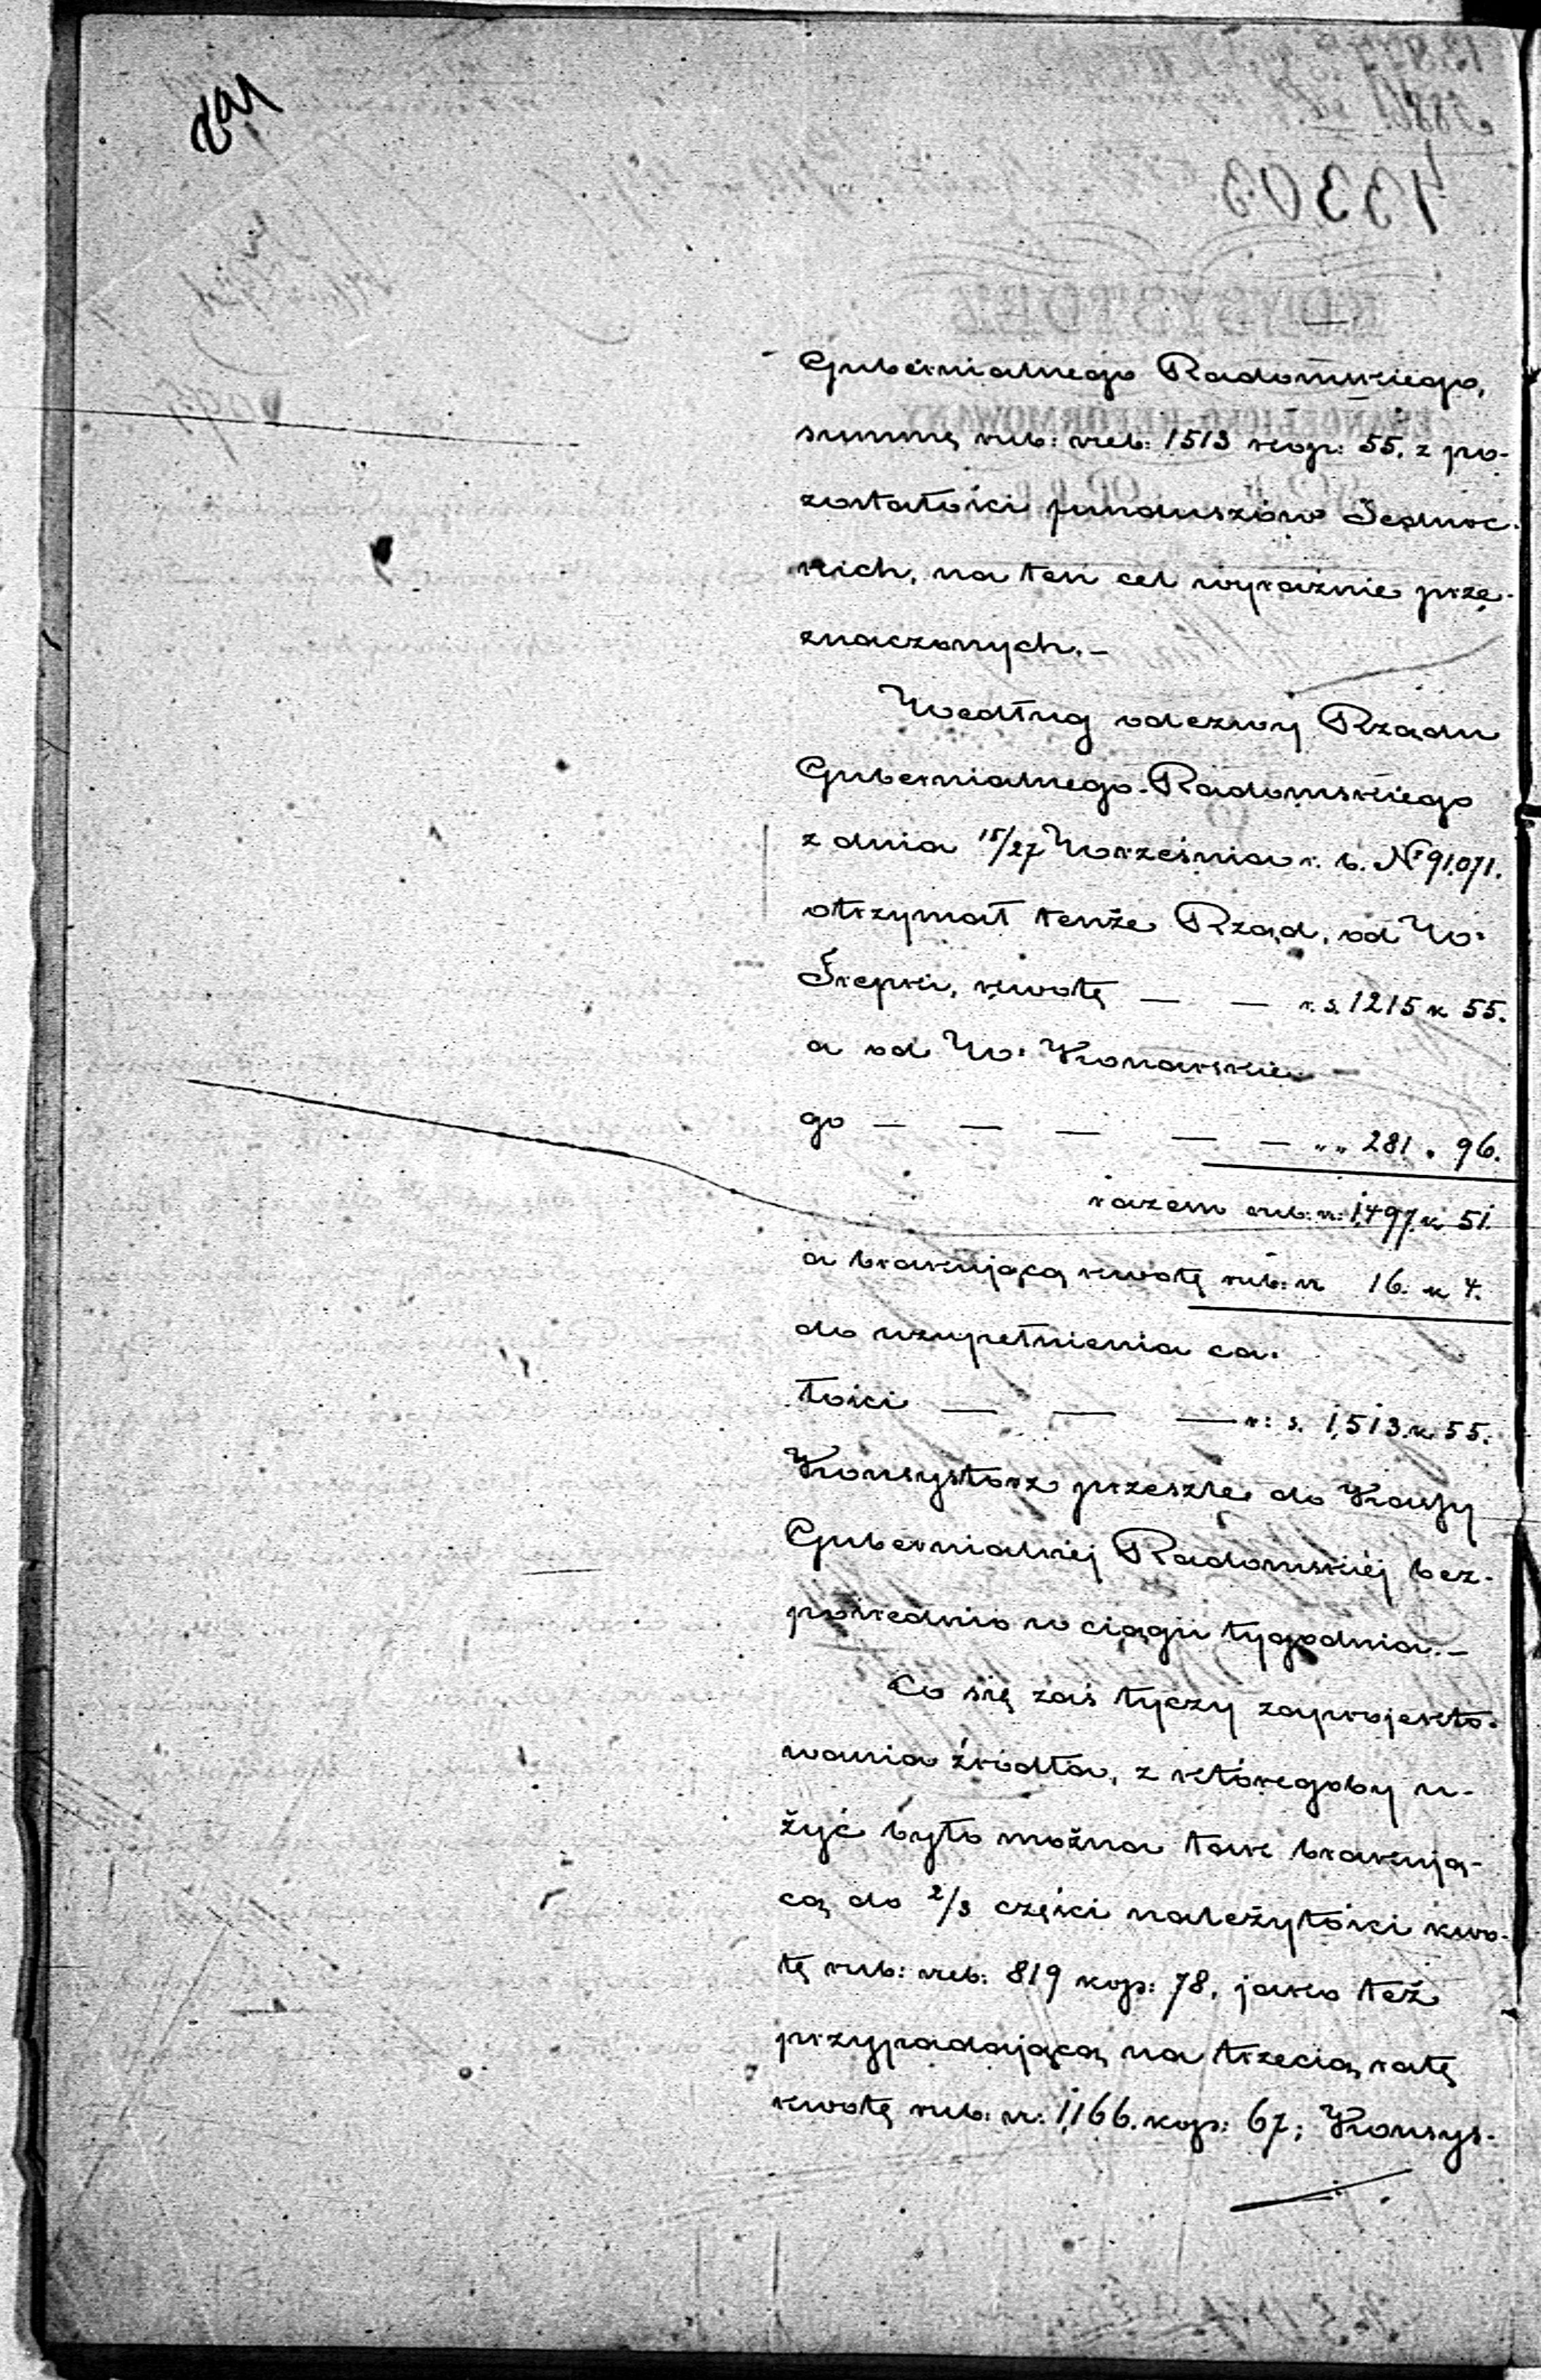 Gubernialnego Radomskiego,
summę rub: sreb: 1513 kop: 55. z po-
zostałości funduszów Sednic-
kich, na ten cel wyraźnie prze-
znaczonych.–
Według odezwy Rządu
Gubernialnego Radomskiego
z dnia 15/27 Września r. b. Nº 91.071.
otrzymał tenże Rząd, od W:
Krepki, kwotę — — r. s. 1215 k 55.
a od W: Konarskie-
go — — — — — „ „ 281 . 96.
razem rub: sr: 1,497. k 51.
a brakującą kwotę rub: sr 16. k 4.
do uzupełnienia ca-
łości — — — r: s. 1,513. k 55.
Konsystorz prześle do Kassy
Gubernialnéj Radomskiéj bez-
pośrednio w ciągu tygodnia.–
Co się zaś tyczy zaprojekto-
wania źródła, z któregoby u-
żyć było można tak brakują-
cą do 2/3 części należytości kwo-
tę rub: sreb: 819 kop: 78, jako też
przypadającą na trzecią ratę
kwotę rub: sr: 1,166. kop: 67; Konsys-